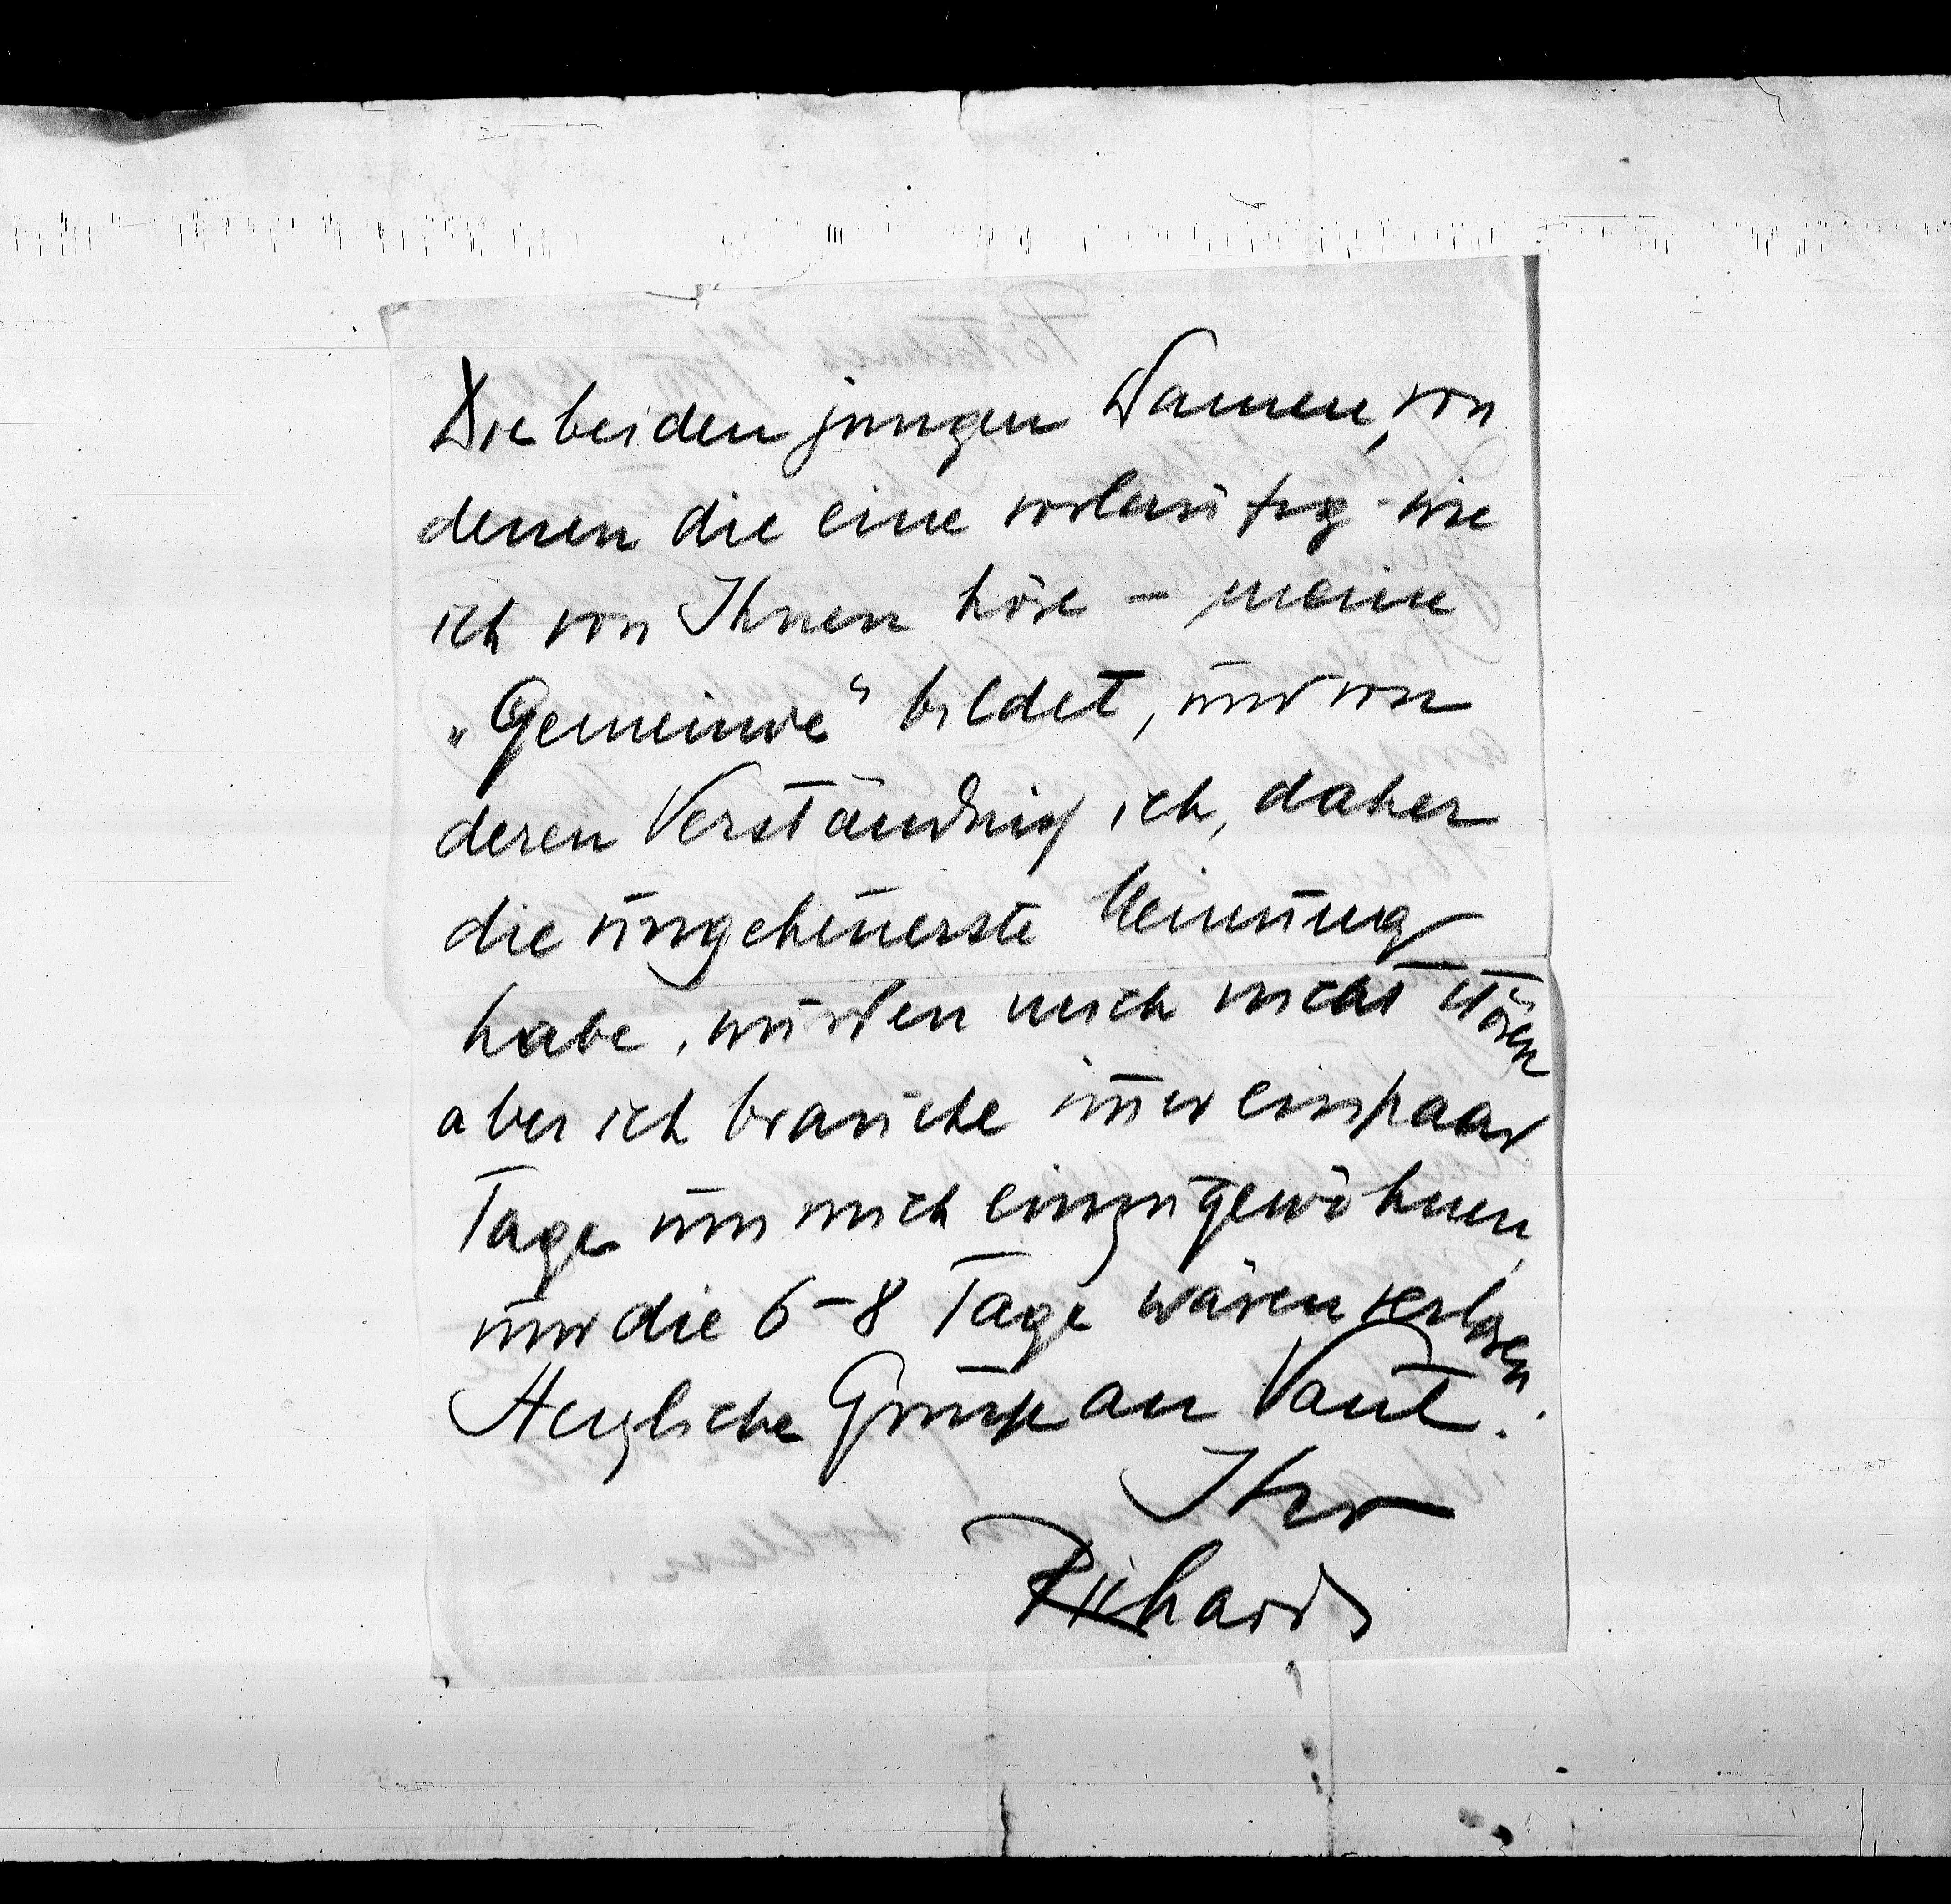 Die beiden jungen Damen, von
denen die eine vorläufig - wie
ich von Ihnen höre - meine
„Gemeinde“ bildet, und von
deren Verständniß ich, daher
die ungeheuerste Meinung
habe, würden mich nicht stören
aber ich brauche immer ein paar
Tage um mich einzugewöhnen,
und die 6-8 Tage wären verloren.
Herzliche Grüße an Paul.
Ihr
Richard